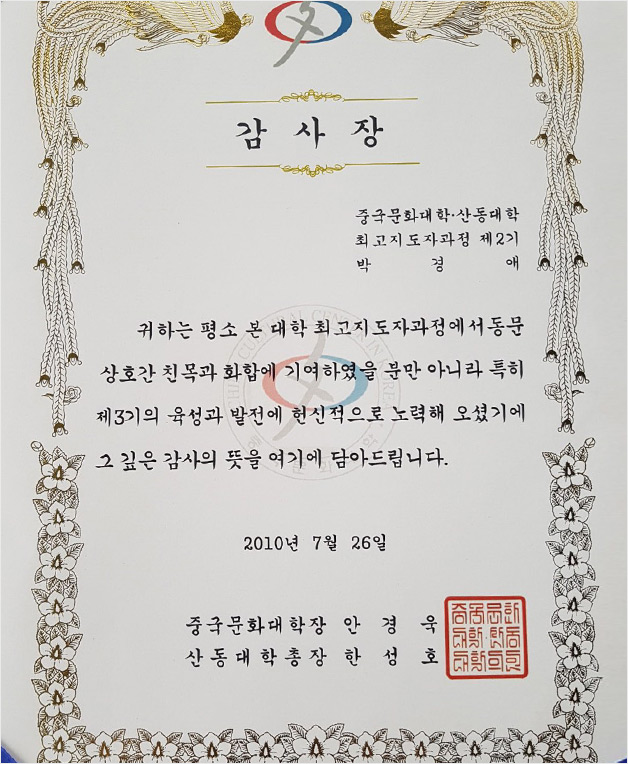 감 사 장
중국문화대학·산동대학
최고지도자과정 제2기
박 경 애
귀하는 평소 본 대학 최고지도자과정에서 동문
상호간 친목과 화합에 기여하였을 분만 아니라 특히
제3기의 육성과 발전에 헌신적으로 노력해 오셨기에
그 깊은 감사의 뜻을 여기에 담아드립니다.
2010년 7월 26일
중국문화대학장 안 경 욱
산동대학총장 한 성 호